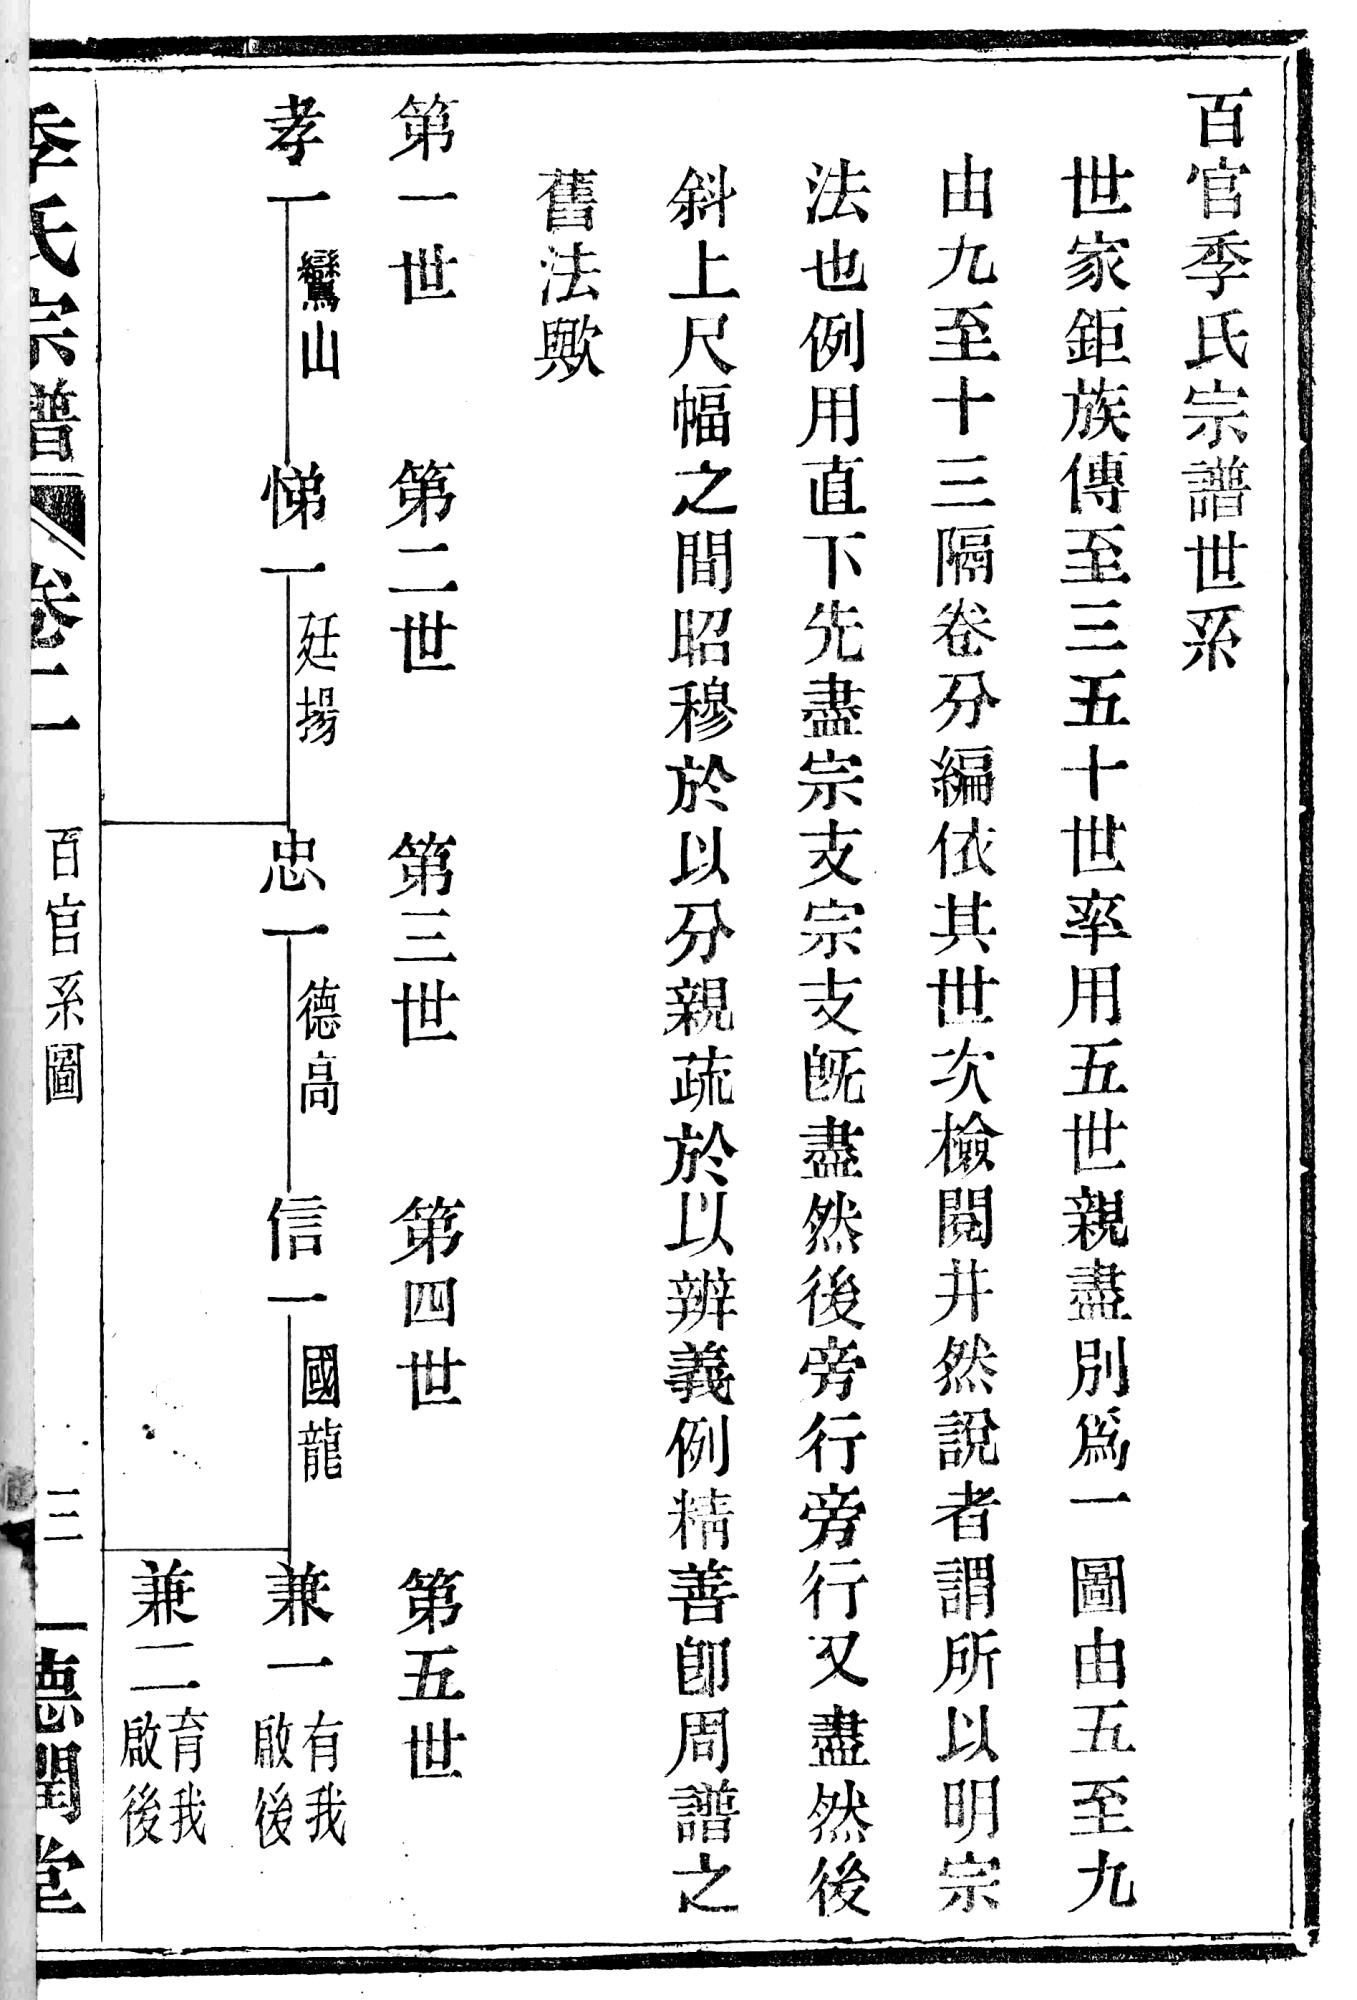 百官季氏宗譜世系
世家鉅族傳至三五十世率用五世親盡別爲一圖由五至九
由九至十三隔卷分編依其世次檢閱井然說者謂所以明宗
法也例用直下先盡宗支宗支旣盡然後旁行旁行又盡然後
斜上尺幅之間昭穆於以分親疏於以辨義例精善卽周譜之
舊法歟
第一世 第二世 第三世 第四世 第五世
孝一 鸞山 悌一 廷揚 忠一 德高 信一 國龍 兼一 有我 啟後
兼二 育我 啟後
季氏宗譜 卷二 百官系圖 三 德潤堂